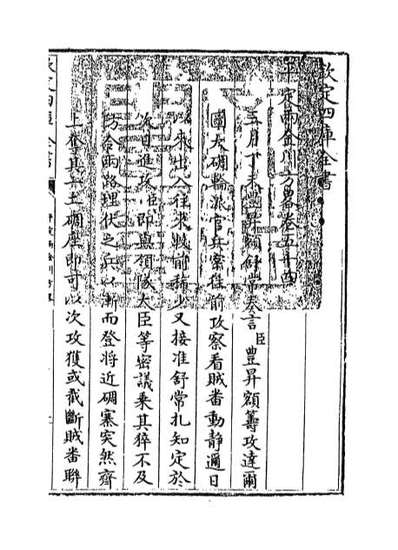 欽定四庫全書
平定兩金川方畧卷五十四
三月丁未豐昇額舒常奏言臣豐昇額籌攻達爾
圖大碉輪派官兵密往前攻察看賊番動靜邇日
以來出入往來較前稀少又接准舒常札知定於
次日進攻臣即與領隊大臣等密議乘其猝不及
防令兩路埋伏之兵以漸而登將近碉寨突然齊
上奪其上碉座即可以次攻獲或截斷賊番聯